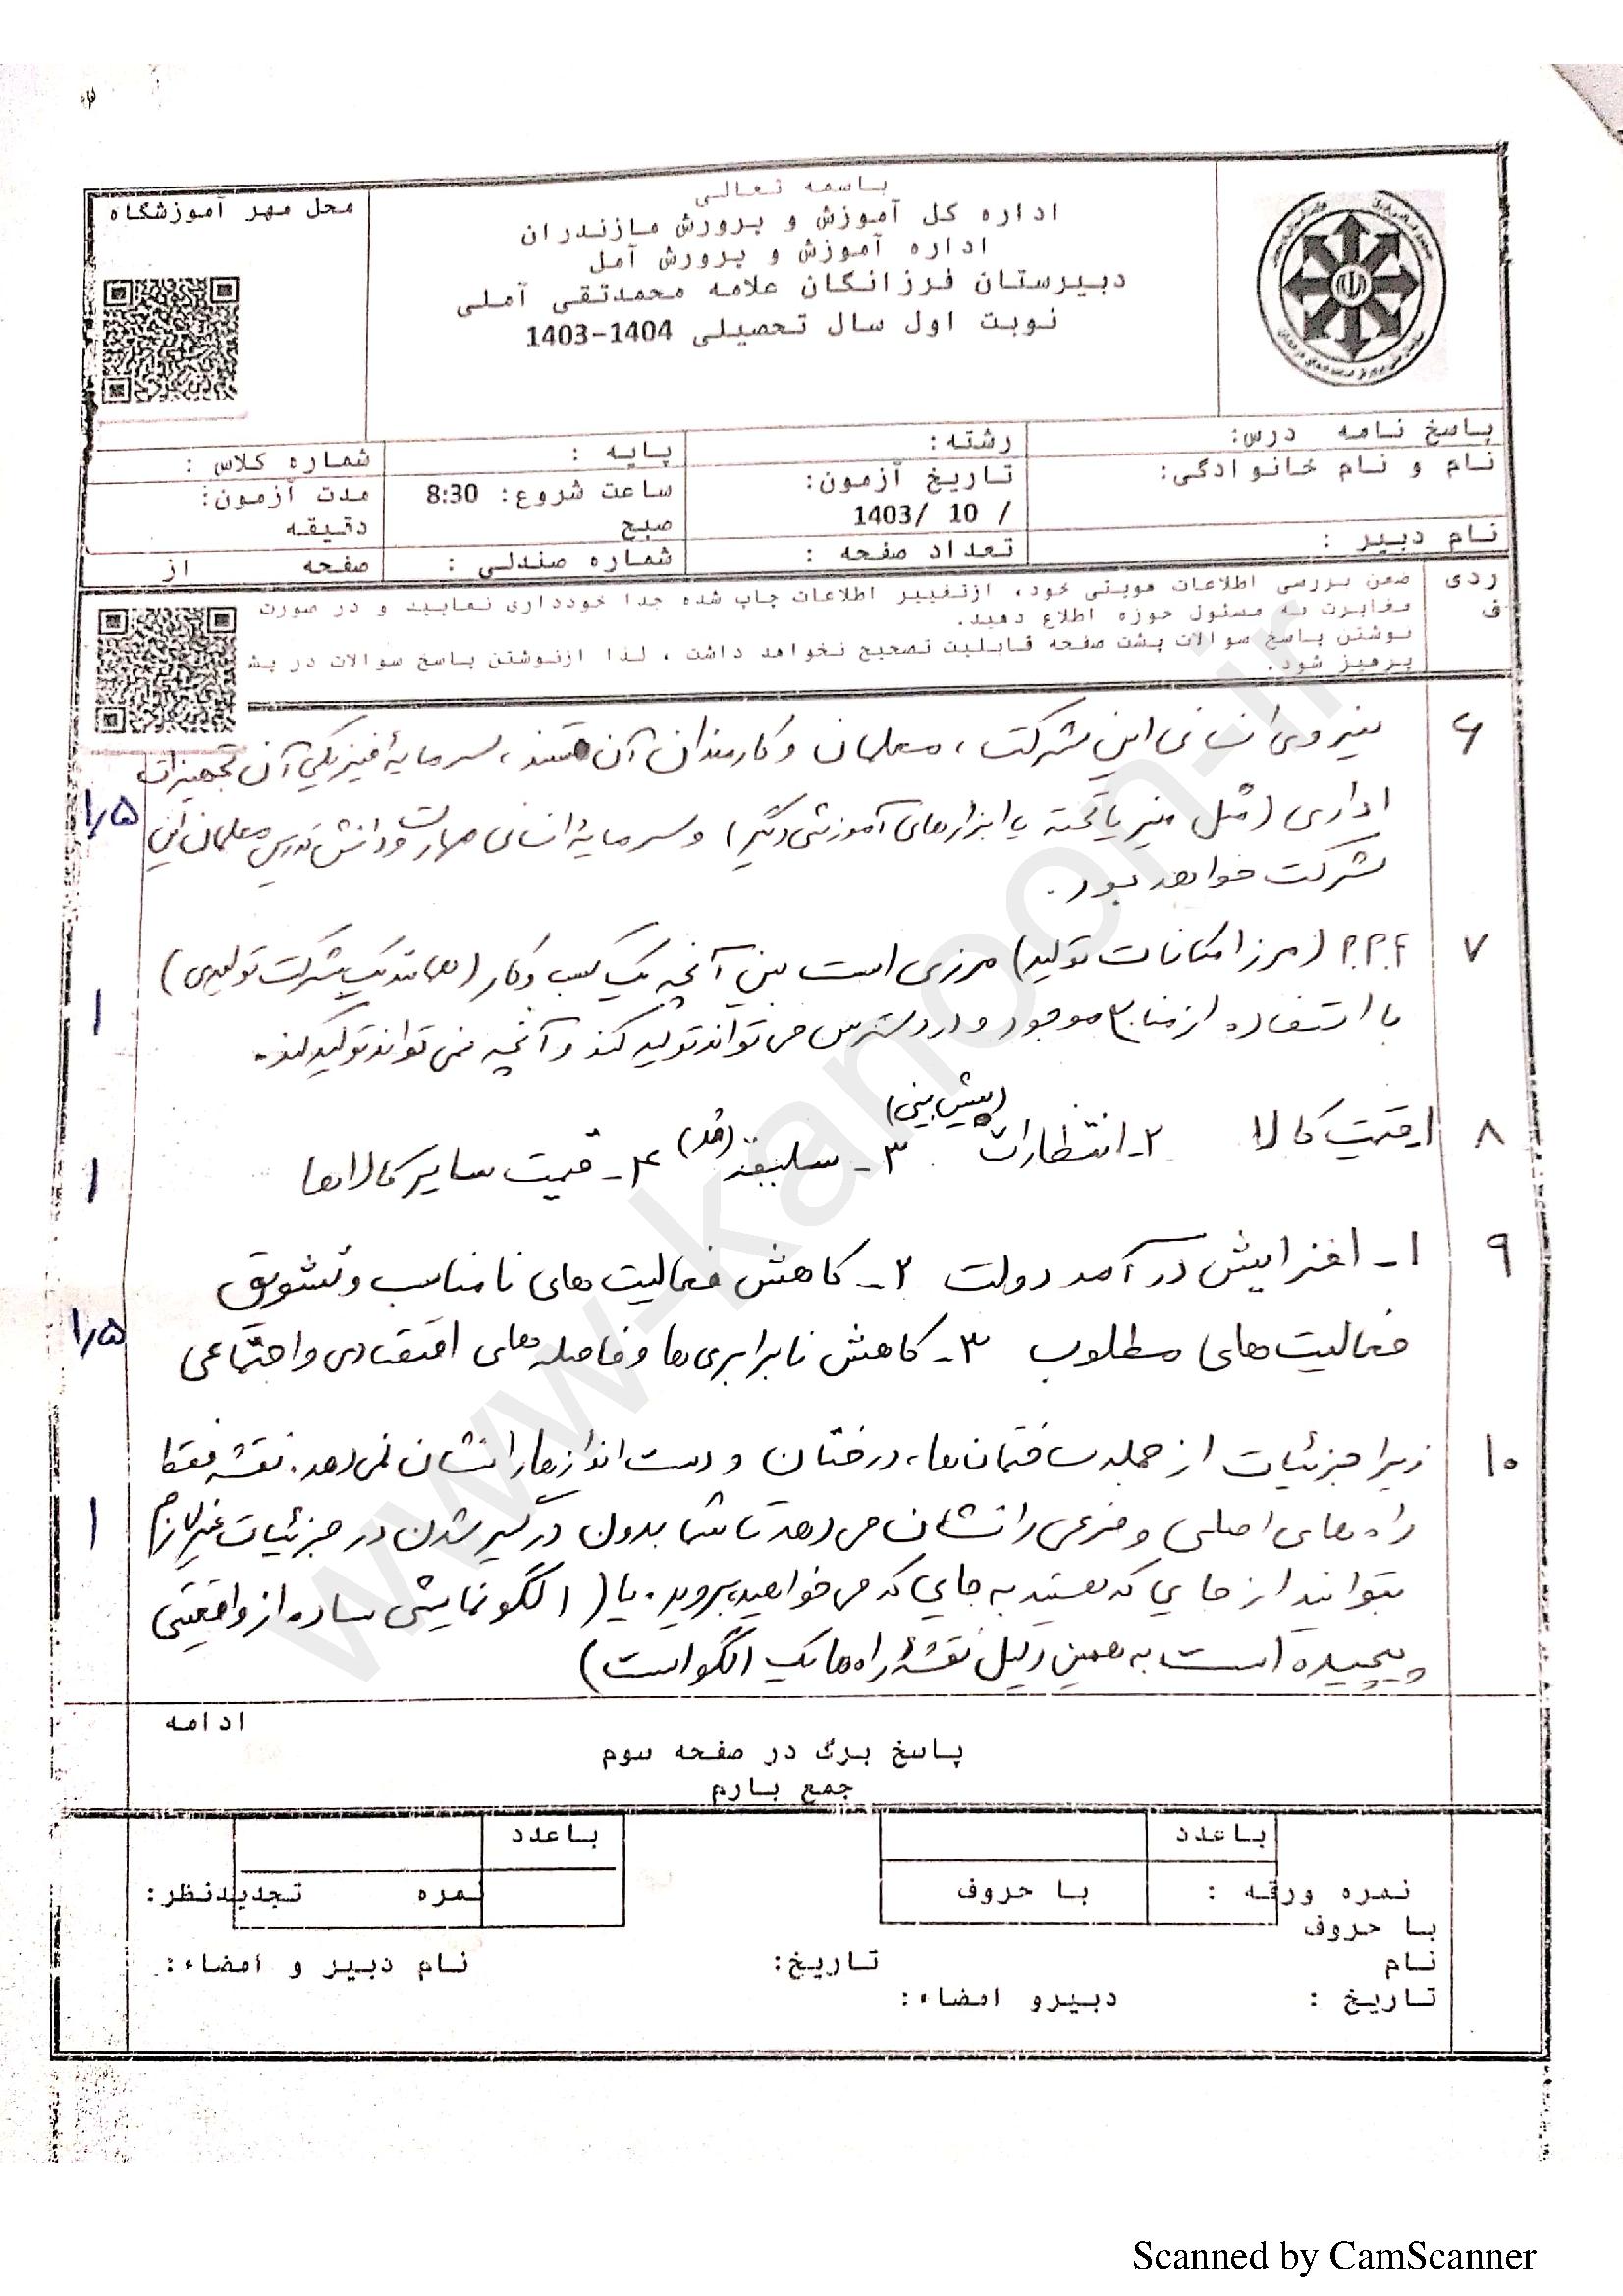 باسمه تعالی
اداره کل آموزش و پرورش مازندران
اداره آموزش و پرورش آمل
دبیرستان فرزانگان علامه محمدتقی آملی
نوبت اول سال تحصیلی 1404-1403
محل مهر آموزشگاه
پاسخ نامه درس: رشته: پایه : شماره کلاس :
نام و نام خانوادگی: تاریخ آزمون: ساعت شروع: 8:30 مدت آزمون:
/ 10 /1403 صبح دقیقه
نام دبیر : تعداد صفحه : شماره صندلی : صفحه از
ردی ضمن بررسی اطلاعات هویتی خود، ازتغییر اطلاعات چاپ شده جدا خودداری نمایید و در صورت
ف مغایرت به مسئول حوزه اطلاع دهید.
نوشتن پاسخ سوالات پشت صفحه قابلیت تصحیح نخواهد داشت ، لذا ازنوشتن پاسخ سوالات در پشت
پرهیز شود.
۶ نیروی انسانی این شرکت، معلمان و کارمندان آن هستند، سرمایهٔ فیزیکی آن تجهیزات
اداری (مثل میز یا تخته یا ابزارهای آموزشی دیگر) و سرمایه انسانی مهارت و دانش تدریس معلمان این ۱/۵
شرکت خواهد بود.
۷ (مرز امکانات تولید) مرزی است بین آنچه یک کسب و کار (همانند یک شرکت تولیدی)
با استفاده از منابع موجود و در دسترس می تواند تولید کند و آنچه نمی تواند تولید کند. ۱
۸ ۱ـ قیمت کالا ۲ـ انتظارات (پیش بینی) ۳ـ سلیقه (مُد) ۴ـ قیمت سایر کالاها ۱
۹ ۱ـ افزایش درآمد دولت ۲ـ کاهش فعالیت های نامناسب و تشویق
فعالیت های مطلوب ۳ـ کاهش نابرابری ها و فاصله های اقتصادی و اجتماعی ۱/۵
۱۰ زیرا جزئیات از جمله ساختمان ها، درختان و دست اندازها را نشان نمی دهد. نقشه فقط
راه های اصلی و فرعی را نشان می دهد تا شما بدون درگیر شدن در جزئیات غیر لازم ۱
بتوانید از جایی که هستید به جایی که می خواهید بروید. یا (الگو نمایشی ساده از واقعیتی
پیچیده است به همین دلیل نقشهٔ راه ها یک الگو است)
ادامه
پاسخ برگ در صفحه سوم
جمع بارم
باعدد باعدد
نمره ورقه : با حروف نمره تجدیدنظر:
با حروف
نام تاریخ: نام دبیر و امضاء:
تاریخ : دبیرو امضاء:
www-kanoon-ir
Scanned by CamScanner